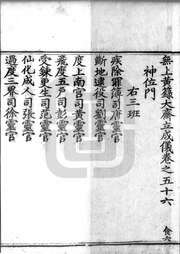 無上黃籙大齋立成儀卷之五十六
神位門
右三班
疾除罪簿司唐靈官
斷地逮役司劉靈官
度上南宮司黃靈官
飛度五戶司彭靈官
受鍊更生司范靈官
仙化成人司張靈官
過度三界司徐靈官
食六